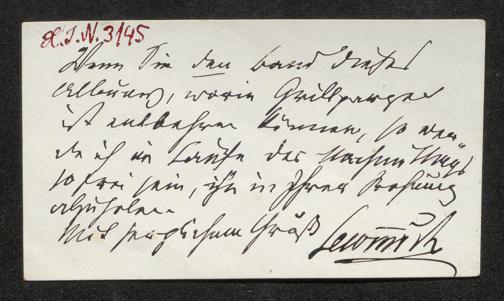 H.I.N. 3145
Wenn Sie den Band dieses
Albums, worin Grillparzer
ist entbehren können, so wer-
de ich im Laufe des Nachmittags
so frei sein, ihn in Ihrer Wohnung
abzuholen.
Mit herzlichem Gruß